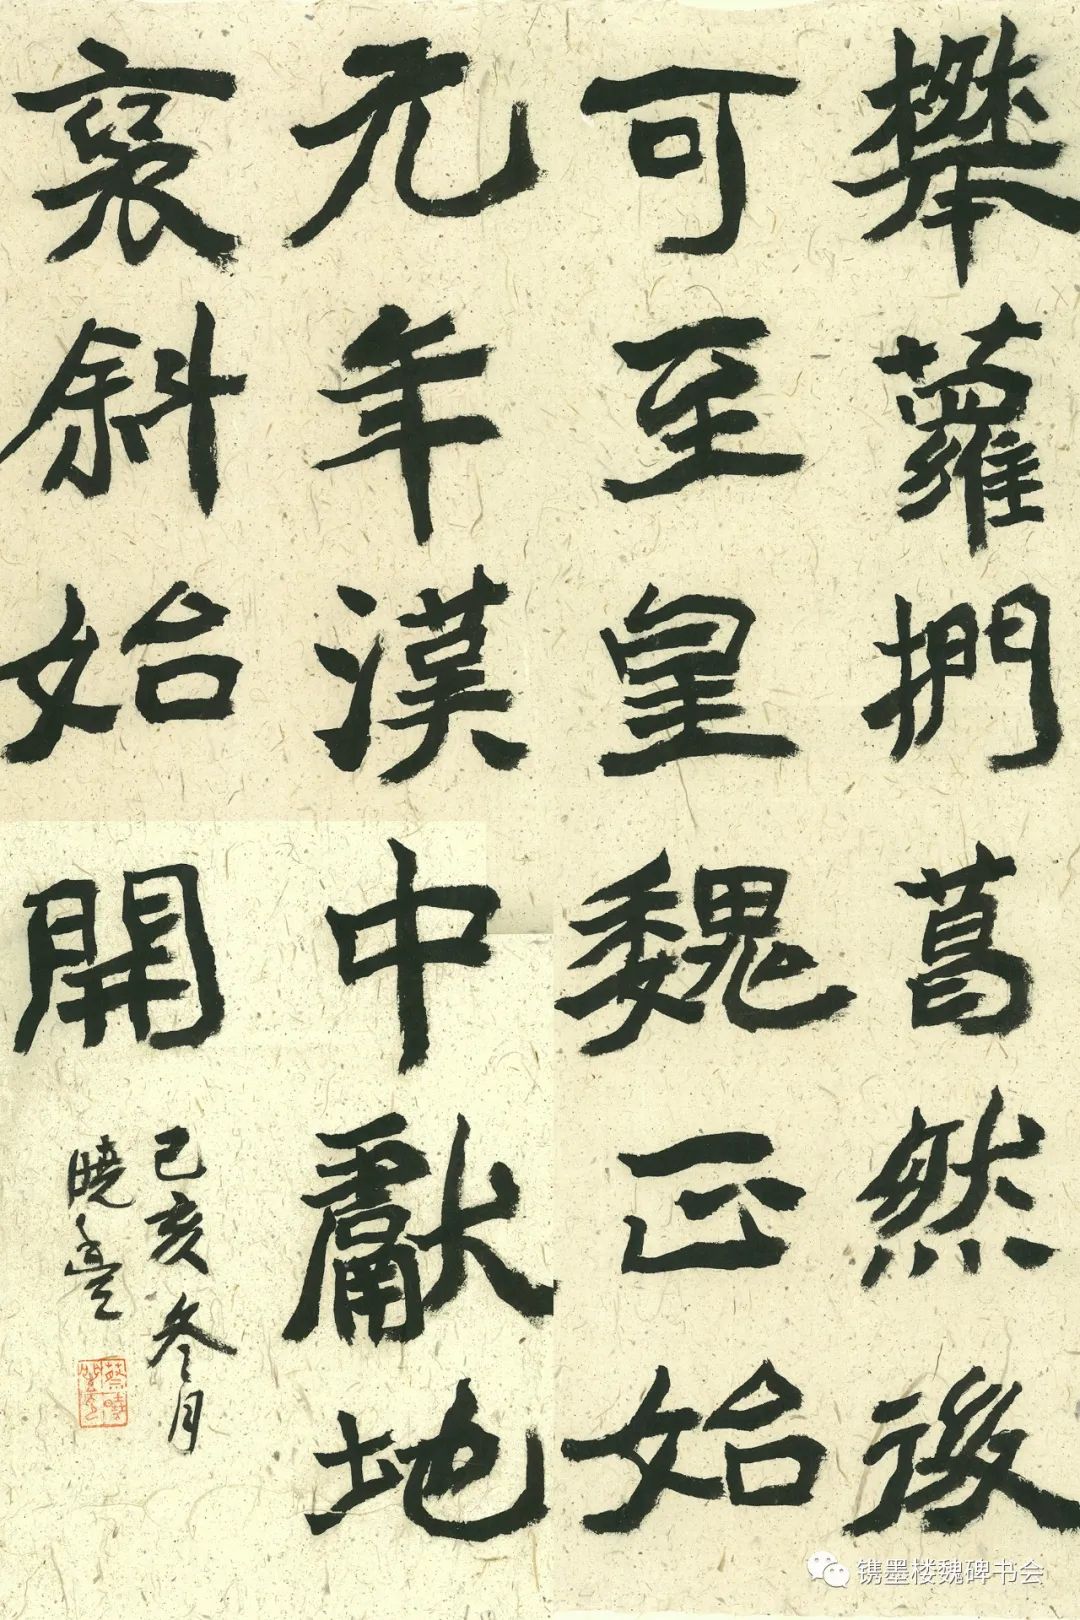 攀蘿捫葛然後
可至皇魏正始
元年漢中獻地
襃斜始開
己亥冬月
曉亮
镌墨楼魏碑书会